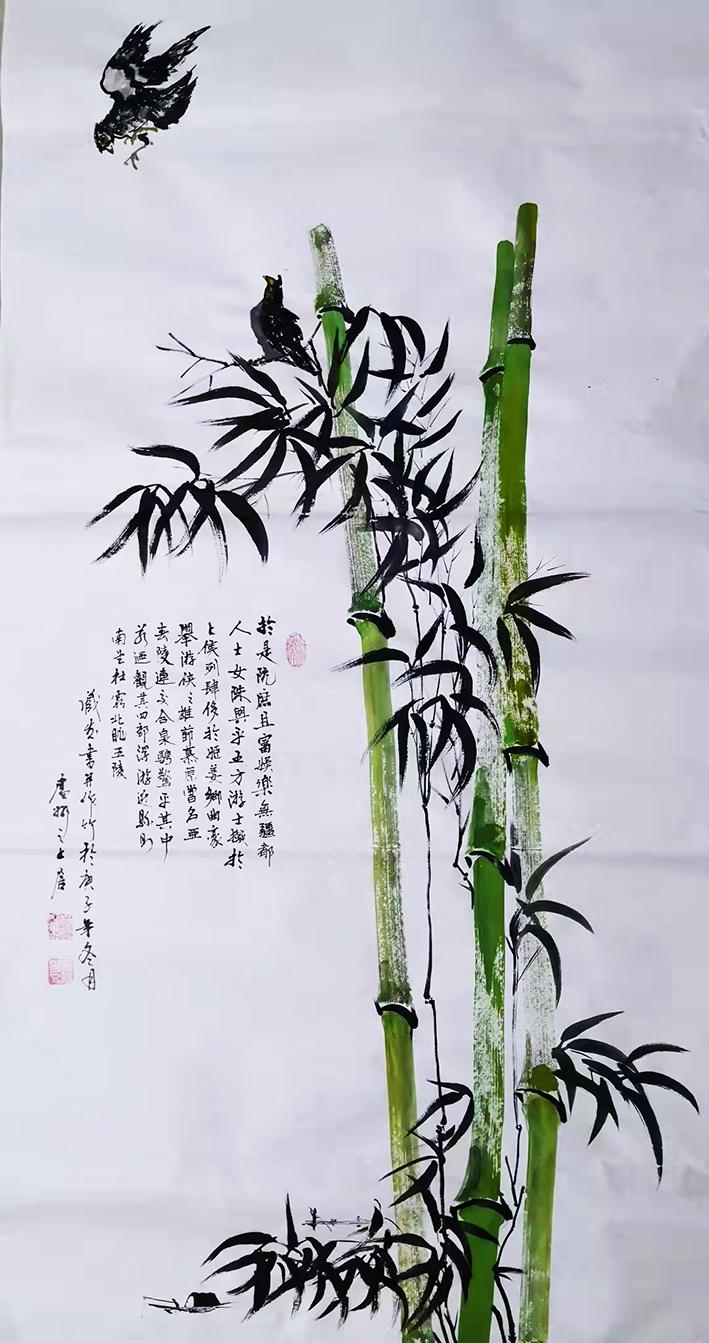 於是既庶且富娛樂無疆都
人士女殊異乎五方游士擬於
公侯列肆侈於姬姜鄉曲豪
舉游俠之雄節慕原嘗名亞
春陵連交合眾騁騖乎其中
若迺觀其四郊浮游近縣則
南望杜霸北眺五陵
書并作竹於庚子年冬月